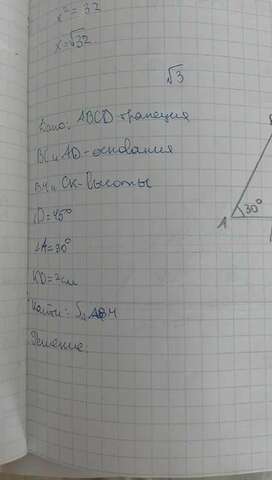 x² = 32
x = √32
√3
Дано: ABCD - трапеция
BC и AD - основания
BH и CK - высоты
∠D = 45°
∠A = 30°
KD = 2 см
Найти: S ABH
A 30°
Решение.